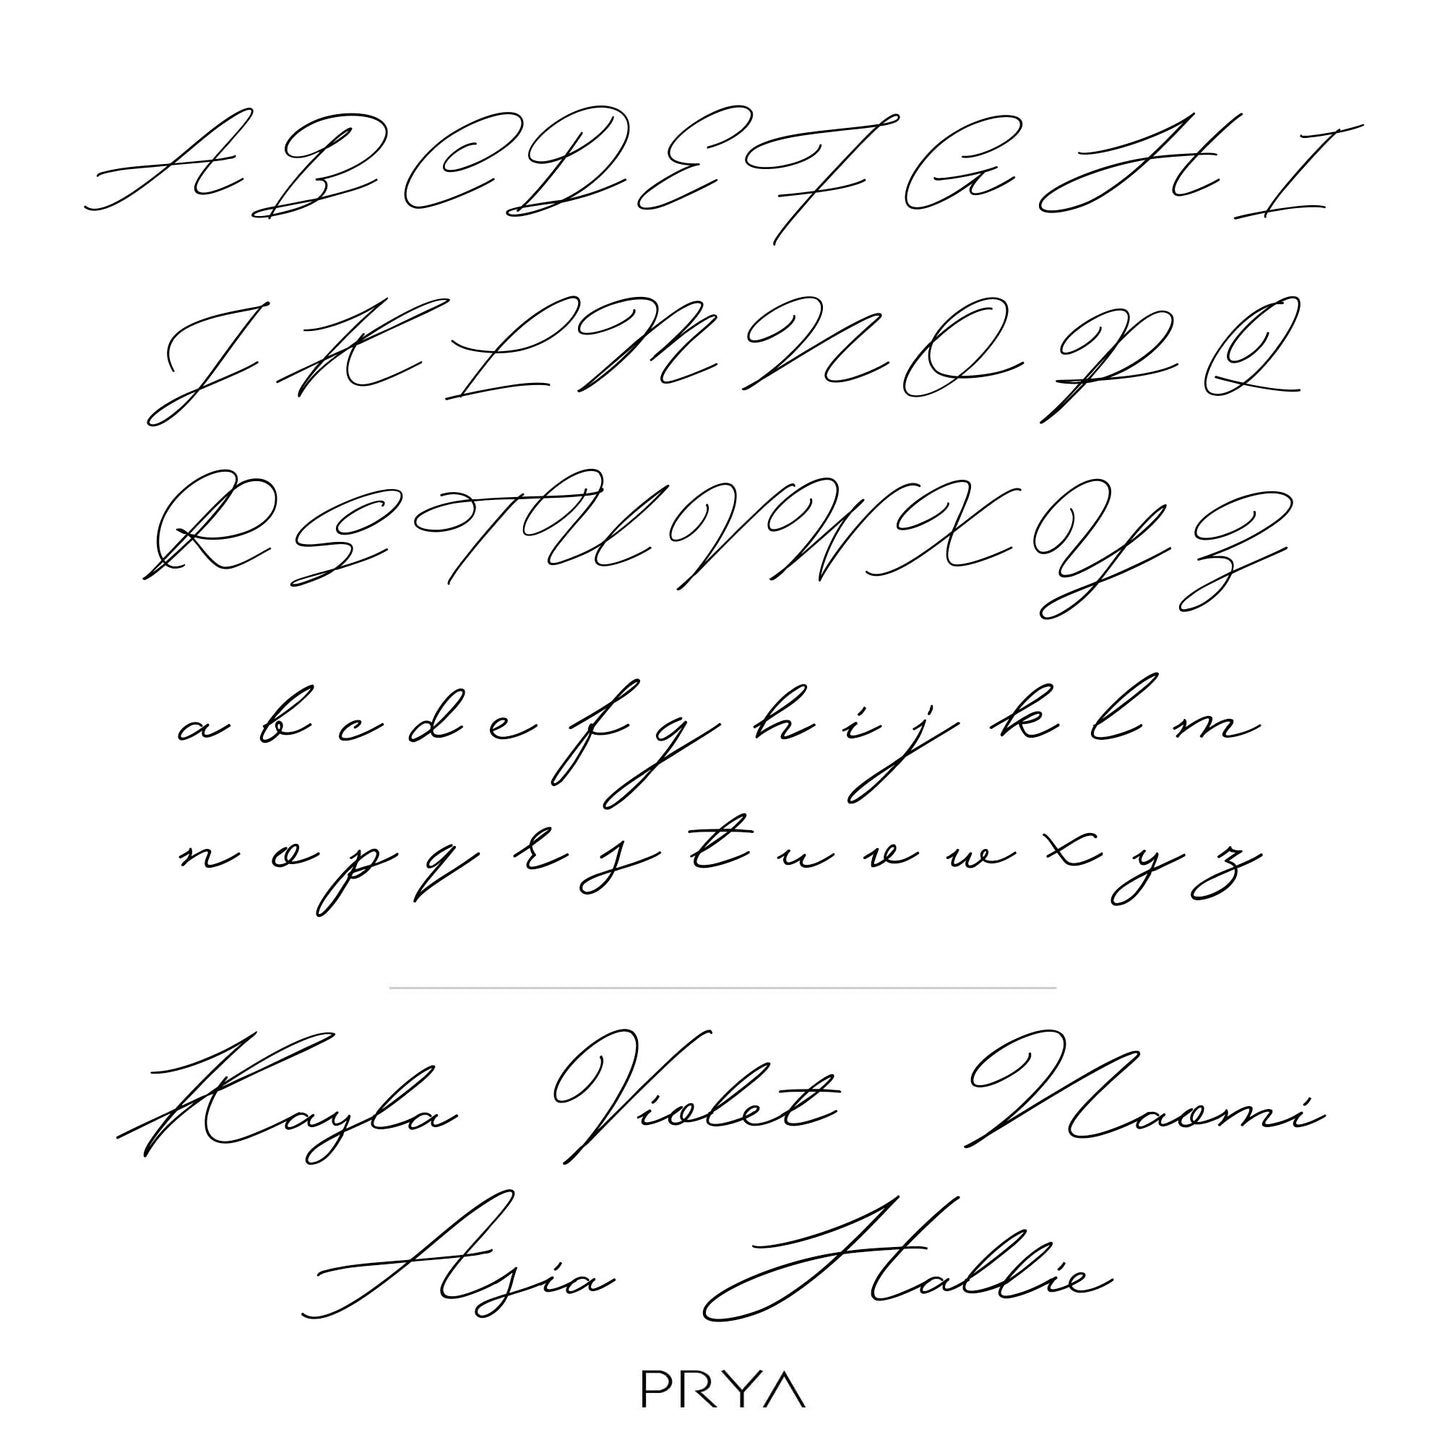 A B C D E F G H I
J K L M N O P Q
R S T U V W X Y Z
a b c d e f g h i j k l m
n o p q r s t u v w x y z
Kayla Violet Naomi
Asia Hallie
PRYA